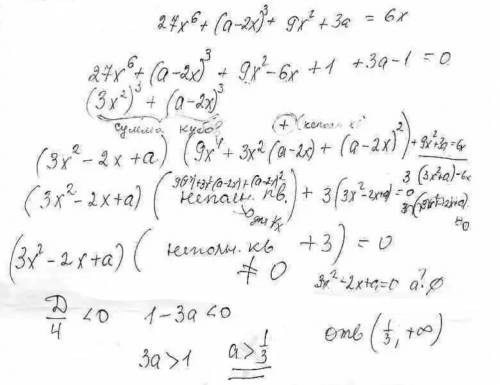 27x⁶ + (a-2x)³ + 9x² + 3a = 6x
27x⁶ + (a-2x)³ + 9x² - 6x + 1 + 3a - 1 = 0
(3x²)³ + (a-2x)³
сумма кубов (+)
(3x² - 2x + a) (9x⁴ + 3x²(a-2x) + (a-2x)²) + 9x² + 3a = 6x
3(3x²+a) - 6x
(3x² - 2x + a) (неполн. кв.) + 3(3x² - 2x + a) = 0
для ∀x
(3x² - 2x + a) ( неполн. кв + 3) = 0
≠ 0
3x² - 2x + a = 0 a? ∅
D/4 < 0 1 - 3a < 0
3a > 1 a > 1/3
отв (1/3, +∞)